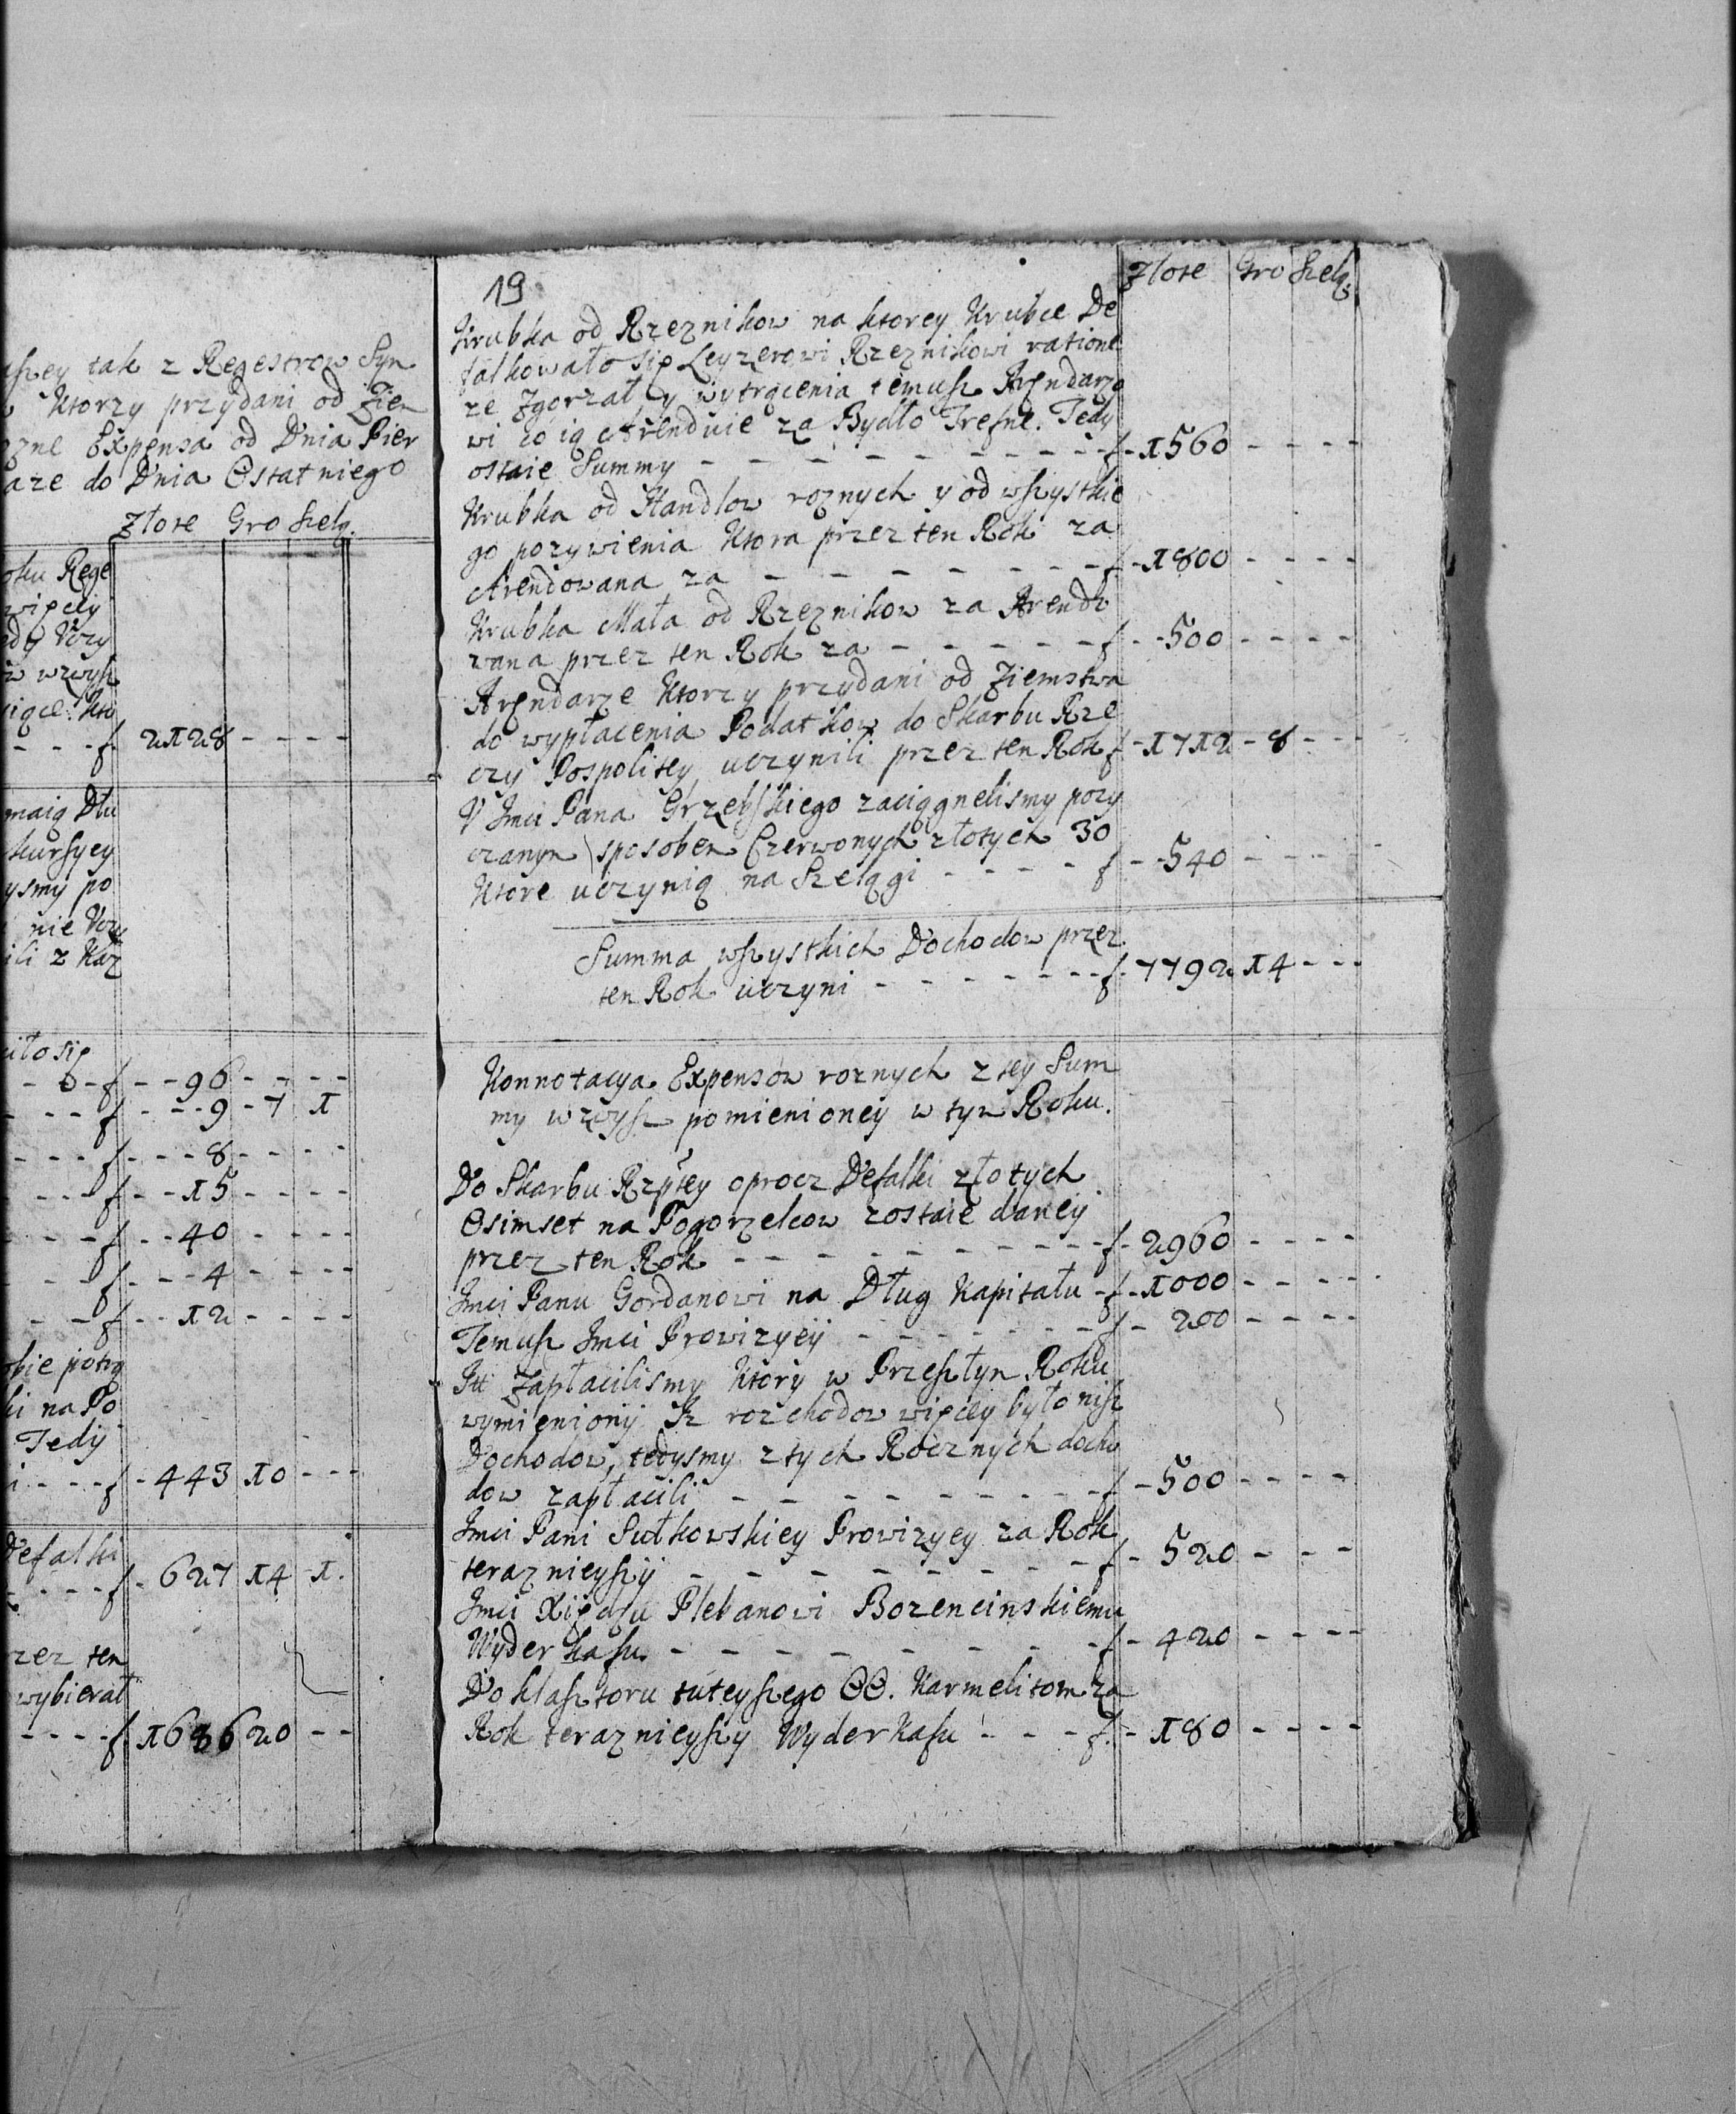 uszey tak z Regestrow Syn
Ktorzy przydani od Ziem
czne Expensa od Dnia Pier
aze do Dnia Ostatniego
Złote Gro Szelą.
oku Rege
więcey
edy Uczy
wzwysz
siące Kto
- - - f 2128 - - - -
maią Dłu
kursyey
ysmy po
nie Uczy
ili z Każ
ciło się
- 6 - f - - 96 - - - -
- - - f - - - 9 - 7 1
- - - f - - - 8 - - - -
- - - f - - 15 - - - -
- - - f - - 40 - - - -
- - - f - - - 4 - - - -
- - - f - - 12 - - - -
obie potrą
ki na Po
Tedy
i - - - f - 443 10 - - -
Defalki
- - - f - 627 14 1.
rzez ten
wybierał
- - - - f 1686 20 - -
19
Złote Gro Szelą.
Krubka od Rzeznikow na ktorey Krubce De
falkowało się Leyzerowi Rzeznikowi ratione
ze Zgorzał y wytrącenia temusz Arędarzo
wi co ią Arenduie za Bydło Trefne. Tedy
ostaie Summy - - - - - - - - - - f - 1560 - - - -
Krubka od Handlow roznych y od wszystkie
go pozywienia Ktora przez ten Rok za
Arendowana za - - - - - - - f - 1800 - - - -
Krubka Mała od Rzeznikow za Arendo
wana przez ten Rok za - - - - - - f - - 500 - - - -
Arędarze Ktorzy przydani od Ziemstwa
do wypłacenia Podatkow do Skarbu Rze
czy Pospolitey uczynili przez ten Rok f - 1712 - 8 - - -
U Jmci Pana Grzebskiego zaciągnelismy pozy
czanym sposobem Czerwonych złotych 30
Ktore uczynią na Szelągi - - - - f - - 540 - - - -
Summa wszystkich Dochodow przez
ten Rok uczyni - - - - - - - f - 7792 14 - - -
Konnotacya Expensow roznych z tey Sum
my wzwysz pomienioney w tym Roku.
Do Skarbu Rzptey oprocz Defalki złotych
Osimset na Pogorzelcow zostaie daney
przez ten Rok - - - - - - - - - f - 2960 - - - -
Jmci Panu Gordanowi na Dług Kapitału - f - 1000 - - - -
Temusz Jmci Prowizyey - - - - - - - f - 200 - - - -
Itt Zapłacilismy Ktory w Przeszłym Roku
wymieniony Jz rozchodow więcey było nisz
Dochodow, tedysmy z tych Rocznych docho
dow zapłacili - - - - - - - - - - f - 500 - - - -
Jmci Pani Sułkowskiey Prowizyey za Rok
teraznieyszy - - - - - - - - - f - 520 - - - -
Jmci Xiędzu Plebanowi Bozencinskiemu
Wyderkafu - - - - - - - - - f - 420 - - - -
Do klasztoru tuteyszego OO. Karmelitom za
Rok teraznieyszy Wyderkafu - - - f - 180 - - - -